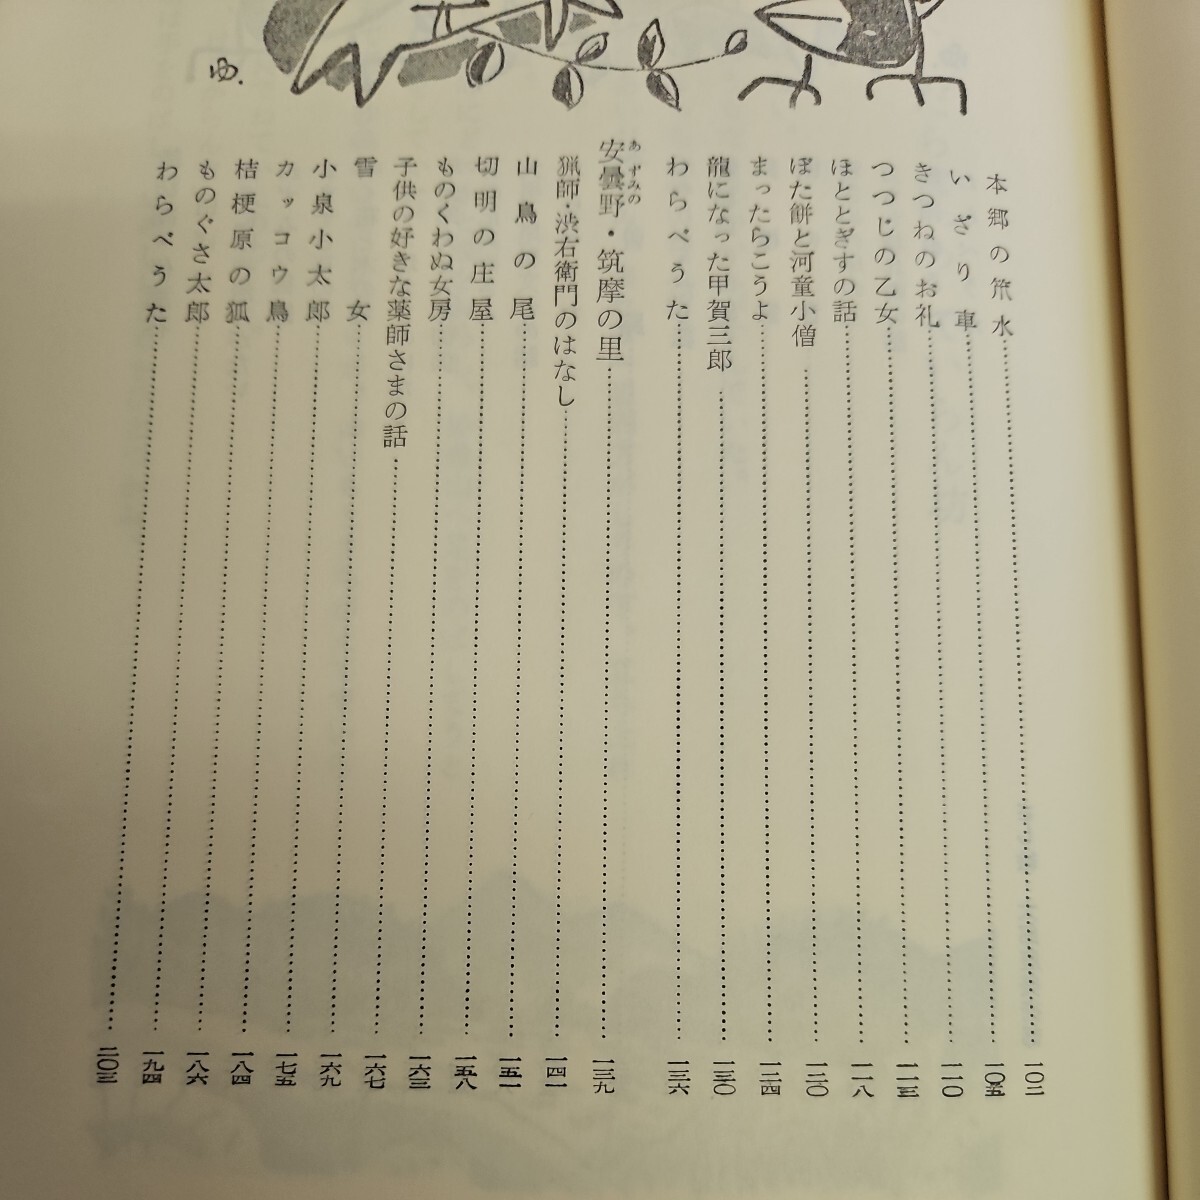 ゆ.
本郷の笊水……一〇二
いざり車……一〇五
きつねのお礼……一一〇
つつじの乙女……一一三
ほととぎすの話……一一八
ぼた餅と河童小僧……一二〇
まったらこうよ……一二四
龍になった甲賀三郎……一三〇
わらべうた……一三六
安曇野・筑摩の里……一三九
あずみの
猟師・渋右衛門のはなし……一四一
山鳥の尾……一五一
切明の庄屋……一五八
ものくわぬ女房……一六三
子供の好きな薬師さまの話……一六七
雪女……一六九
小泉小太郎……一七五
カッコウ鳥……一八四
桔梗原の狐……一八六
ものぐさ太郎……一九四
わらべうた……二〇三